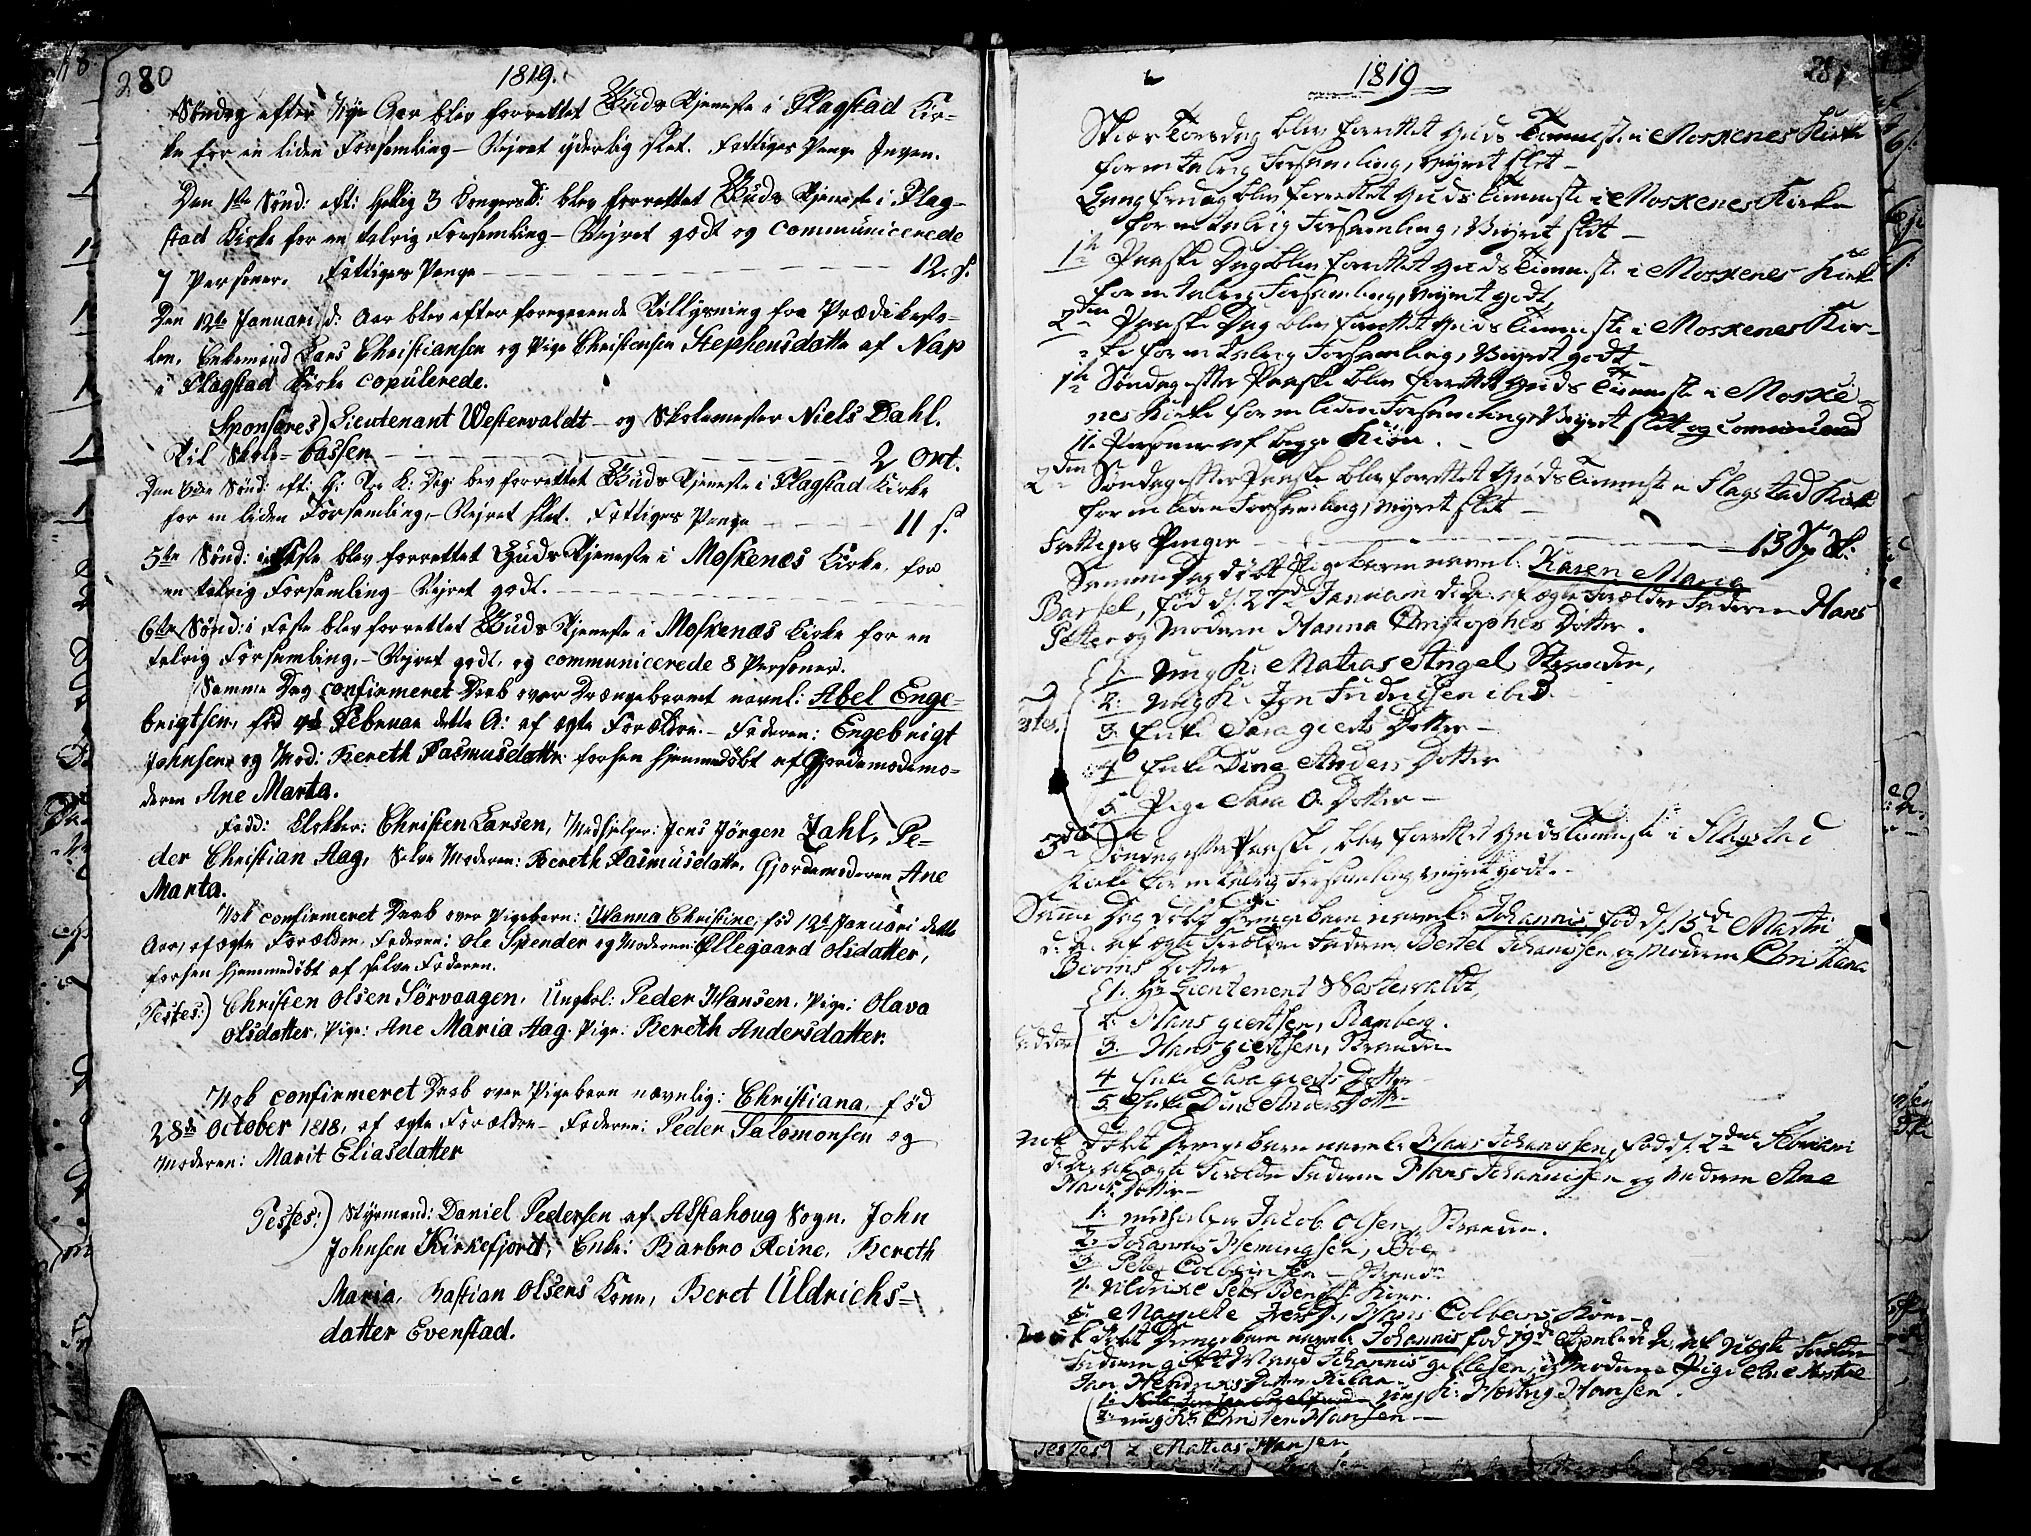 280
1819.
Søndag efter Nye Aar blev forrettet Guds Tjeneste i Flagstad Kir-
ke for en liden Forsamling – Vejret yderlig slet. Fattiges Penge Ingen.
Den 1ste Sønd: eft: Hellig 3 Kongersd: blev forrettet Guds Tjeneste i Flag-
stad Kirke for en talrig Forsamling – Vejret godt og communicerede
7 Personer. Fattiges Penge – 12. s.
Den 12te Januari d: Aar blev efter foregaaende Tillysning fra Prædikesto-
len, Enkemand Lars Christiansen og Pige Christensen Stephensdatter af Nap
i Flagstad Kirke copulerede.
Sponsores) Lieutenant Westervaldt – og Skolemester Niels Dahl.
Til Skole-Cassen – 2 Ort.
Den 6te Sønd: eft: H: Tre K: Dag: bev forrettet Guds Tjeneste i Flagstad Kirke
for en liden Forsamling, – Vejret slet. Fattiges Penge – 11 s.
5te Sønd: i Faste blev forrettet Guds Tjeneste i Moskenæs Kirke, for
en talrig Forsamling – Vejret godt.
6te Sønd: i Faste blev forrettet Guds Tjeneste i Moskenæs Kirke for en
talrig Forsamling, – Vejret godt, og communicerede 8 Personer.
Samme Dag confirmeret Daab over Drængebarnet navnl: Abel Enge-
brigtsen, fød Februar dette A: af ægte Forældre. – Faderen: Engebrigt
Johnsen og Mod: Bereth Rasmusdatter forhen hjemmedøbt af Gjordemodemo-
deren Ane Marta.
Fadd: Klokker: Christen Larsen, Medhjelper: Jens Jörgen Zahl, Pe-
der Christian Aag, Selve Moderen: Bereth Rasmusdatter, Gjordemoderen Ane
Marta.
Nok confirmeret Daab over Pigebarn: Hanna Christine, fød 12te Januari dette
Aar, af ægte Forældre, Faderen: Ole Spender og Moderen: Ellegaard Olsdatter,
forhen hjemmedøbt af selve Faderen.
Testes:) Christen Olsen Sörvaagen, Ungkol: Peder Hansen, Pige: Olava
Olsdatter, Pige: Ane Maria Aag. Pige: Bereth Andersdatter.
Nok confirmeret Daab over Pigebarn nævnlig: Christiana, fød
28de October 1818, af ægte Forældre – Faderen: Peder Salomonsen og
Moderen: Marit Eliasdatter
Testes:) Styrmand: Daniel Pedersen af Alstahoug Sogn, John
Johnsen Kirkefjord, Enke: Barbro Reine, Bereth
Maria, Bastian Olsens Kone, Beret Uldrichs-
datter Evenstad.
281
1819
Skier Torsdag blev forrettet Guds Tienneste i Moskenes Kirke
for en talrig Forsamling, Veyret slet –
Langfredag blev forrettet Guds Tienneste i Moskenes Kirke
for en talrig Forsamling, Veyret slet –
1te Paaske Dag blev forrettet Guds Tienneste i Moskenes Kirke
for en talrig Forsamling, Veyret godt,
2den Paaske Dag blev forrettet Guds Tienneste i Moskenes Kir-
ke for en talrig Forsamling, Veyret godt –
1te Søndag efter Paaske blev forrettet Guds Tienneste i Moske-
nes Kirke for en liden Forsamling, Veyret slet og
11 Personer af begge Kiön. –
2den Søndag efter Paaske blev forrettet Guds Tienneste i Flagstad Kirke
for en liden Forsamling, Veyret slet –
Fattiges Penger – 13
Samme Dag døbt Pigebarn navnl: Karen Maria
Barsel, fød d: 27de Januari d: A: af ægte Forældre Faderen Hans
Petter og Moderen Hanna Christophers Dotter.
1. Ung K: Matias Angel, Stranden,
2. Ung K. Jon Fridrichsen ibid.
3. Enke Sara Gierts Dotter –
4 Enke Dine Anders Dotter
5. Pige Sara O. Dotter –
3die Søndag efter Paaske, blev forrettet Guds Tienneste i Flagstad
Kirke for en talrig Forsamling Veyret godt. –
Samme Dag døbt Drengebarn navnl: Johannis, fød d: 15de Martii
d: A: af ægte Forældre Faderen Bertel Johannsen og Moderen Christiana
Dotter
1. Hr Lieutenent Westervaldt,
2. Hans Giertsen, Ramberg.
3. Hans Giertsen, Stranden
4 Enke Sara Gierts Dotter –
5. Enke Dine Anders Dotter –
Nok døbt Drengebarn navnl: Hans Johannsen, fød d: 2den Februari
d: A: af ægte Forældre Faderen Hans Johannisen og Moderen Ane
Hans Dotter –
1. Medhielper Jacob Olsen, Stranden.
2. Johannes Hemingsen, Böe
3. Peter Colbeinsen – Stranden
4. Uldrikke Peter Bendts Kone.
5. Hans Colbeins Kone –
Nok døbt Drengebarn navnl: Johannis fød 19de April d: A: af uægte Forældre
Faderen gift Mand Johannis Ellesen, og Moderen Pige Ane
1. Ung K: Hartvig Hansen.
2. Ung K: Christen Hansen –
Testes 2 Mathias Hansen